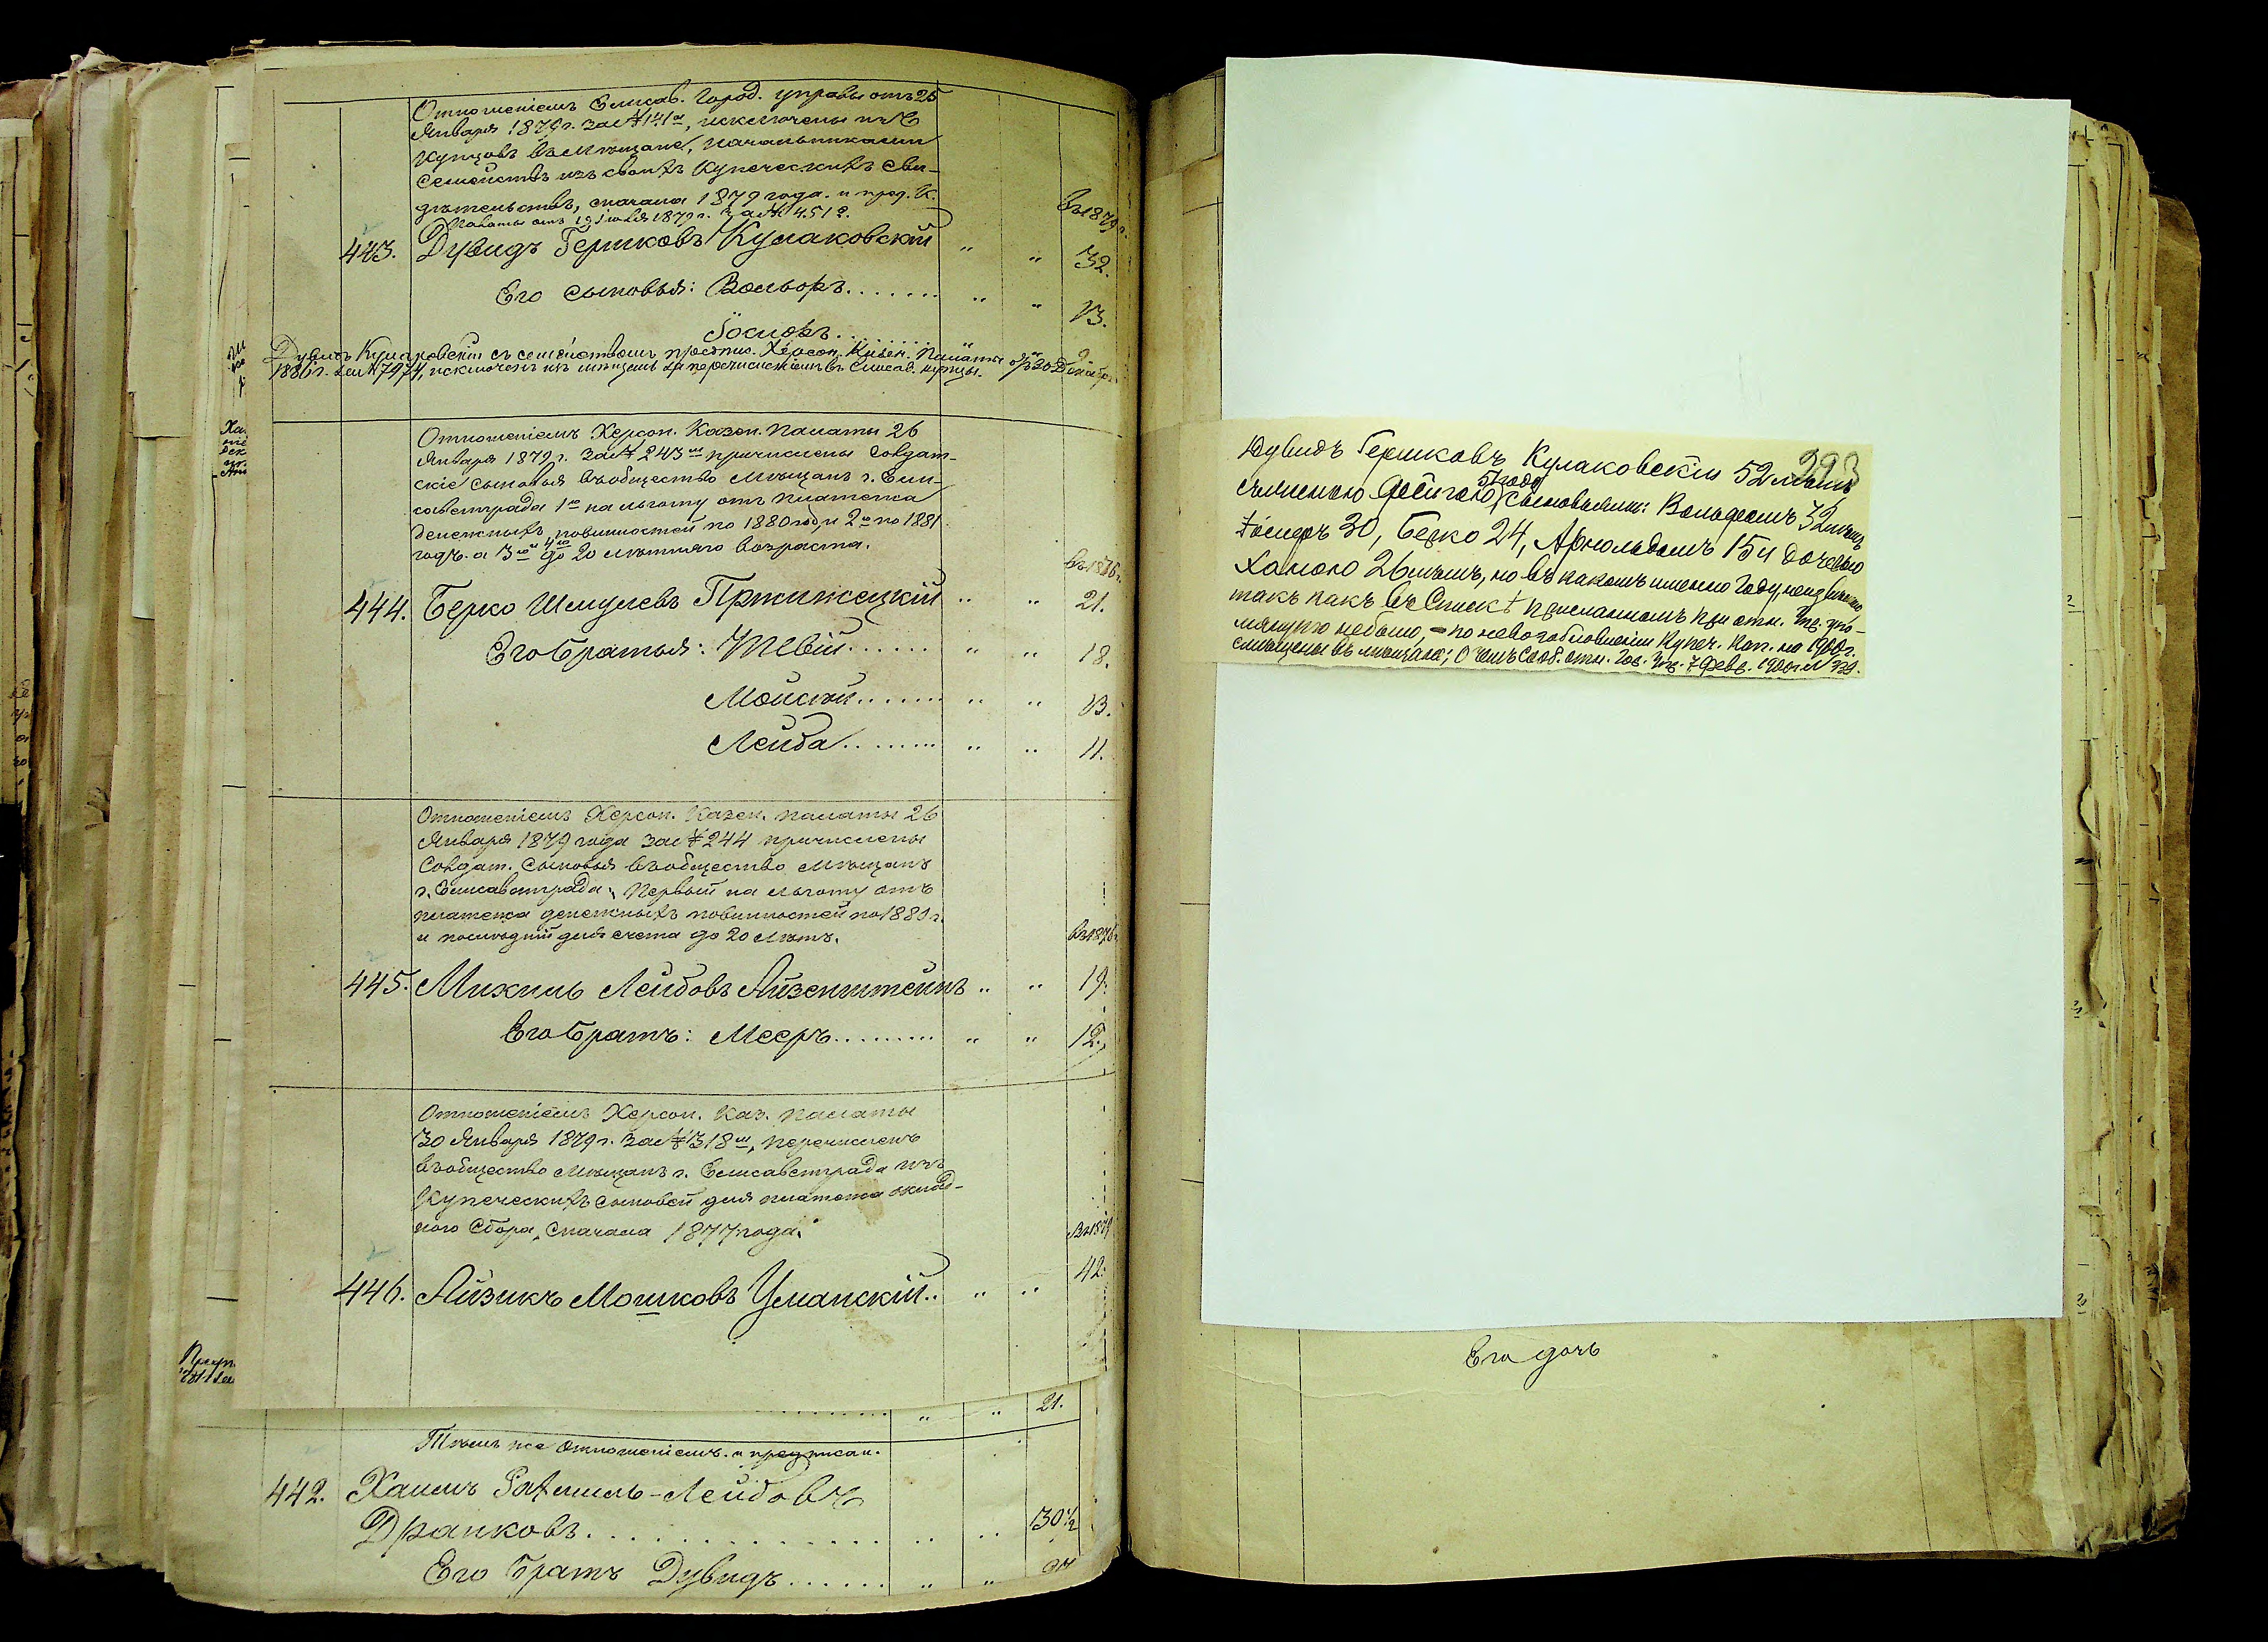 Отношеніемъ Елисав. Город. управы отъ 25
Января 1879 г. за № 141, исключены изъ
Купцовъ въ Мѣщане, начальниками
Семействъ изъ своихъ Купеческихъ сви-
дѣтельствъ, сначала 1879 года. и пред. К.
Палаты отъ 19 1879 г. за № 4512.
Въ 1879 г.
443. Дувидъ Гершковъ Кулаковскій " " 32.
Его сыновья: Вольфъ....... " " 13.
Іосифъ........ 9
Дувидъ Кулаковскій съ семействомъ предпис. Херсон. Казен. Палаты отъ 20 Декабр.
1880 г. за № 7974, исключенъ изъ мѣщанъ за перечисленіемъ въ Елисав. купцы.
Отношеніемъ Херсон. Казен. Палаты 26
Января 1879 г. за № 243 причислены Солдат-
скіе сыновья въ общество Мѣщанъ г. Ели-
саветграда 1й на льготу отъ платежа
денежныхъ повинностей по 1880 годъ, и 2й по 1881
годъ. а 3й и 4й до 20 лѣтняго возраста.
Въ 1876 г.
444. Берко Шмулевъ Пржижецкій " " 21.
Его братья: Тевій...... " " 18.
Мойсей....... " " 13.
Лейба......... " " 11.
Отношеніемъ Херсон. Казен. палаты 26
Января 1879 года за № 244 причислены
Солдат. Сыновья въ общество Мѣщанъ
г. Елисаветграда, Первый на льготу отъ
платежа денежныхъ повинностей по 1880 г.
и послѣдній для счета до 20 лѣтъ.
Въ 1876 г.
445. Михиль Лейбовъ Айзенштейнъ " " 19.
Его братъ: Мееръ......... " " 12.
Отношеніемъ Херсон. Каз. палаты
30 Января 1879 г. за № 318, перечисленъ
въ общество Мѣщанъ г. Елисаветграда изъ
Купеческихъ сыновей для платежа оклад-
ного Сбора, сначала 1877 года.
Въ 1879
446. Айзикъ Мошковъ Уманскій.. " " 42.
" " 21.
Тѣмъ же отношеніемъ. и предписан.
442. Хаимъ -Лейбовъ
Дранковъ............. " " 30½
Его братъ Дувидъ...... " "
293
Дувидъ Гершковъ Кулаковскій 52 лѣтъ
съ женою 51 года сыновьями: Вольфомъ 32 лѣтъ
Іосифъ 30, Берко 24, Арнольдомъ 15 и дочерью
Ханою 26 лѣтъ, но въ какомъ именно году неизвѣстно,
такъ какъ въ Спискѣ присланномъ при отн. упо-
мянуто небыло, - по невозобновленіи Купеч. Кап. на 1900 г.
въ мѣщане; О чемъ сооб. отн. Гор. Упр. 7 Февр. 1900 г. №
Его дочь